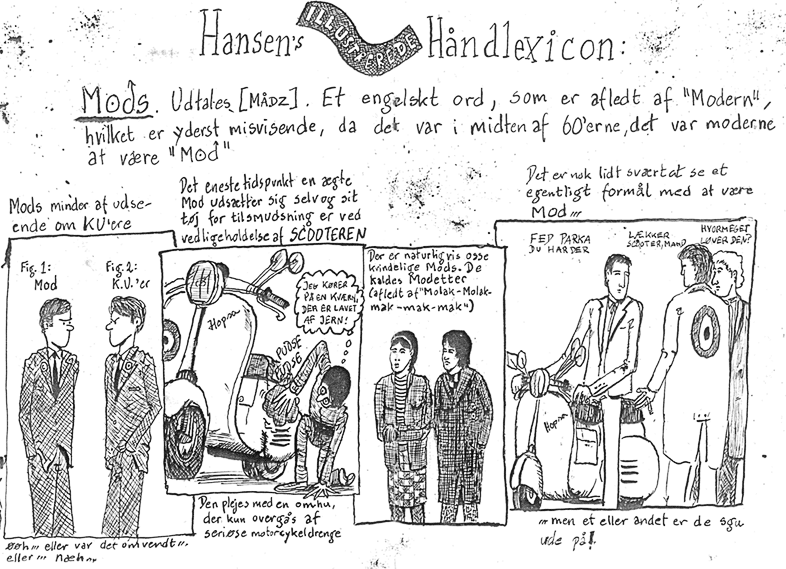 Hansen's ILLUSTREREDE Håndlexicon:
Mods. Udtales [MÅDZ]. Et engelskt ord, som er afledt af "Modern",
hvilket er yderst misvisende, da det var i midten af 60'erne, det var moderne
at være "Mod"
Mods minder af udse-
ende om KU'ere
Fig. 1:
Mod
Fig. 2:
K.U.'er
øøh... eller var det omvendt...
eller... næh...
Det eneste tidspunkt en ægte
Mod udsætter sig selv og sit
tøj for tilsmudsning er ved
vedligeholdelse af SCOOTEREN
JEG KØRER
PÅ EN KVÆRN,
DER ER LAVET
AF JERN!
Hopsa
PUDSE
Den plejes med en omhu,
der kun overgås af
seriøse motorcykeldrenge
Der er naturligvis osse
kvindelige Mods. De
kaldes Modetter
(afledt af "Molak-Molak-
mak-mak-mak")
Det er nok lidt svært at se et
egentligt formål med at være
Mod...
FED PARKA
DU HAR DER
LÆKKER
SCOOTER, MAND
HVOR MEGET
LAVER DEN?
Hopsa
... men et eller andet er de sgu
ude på!